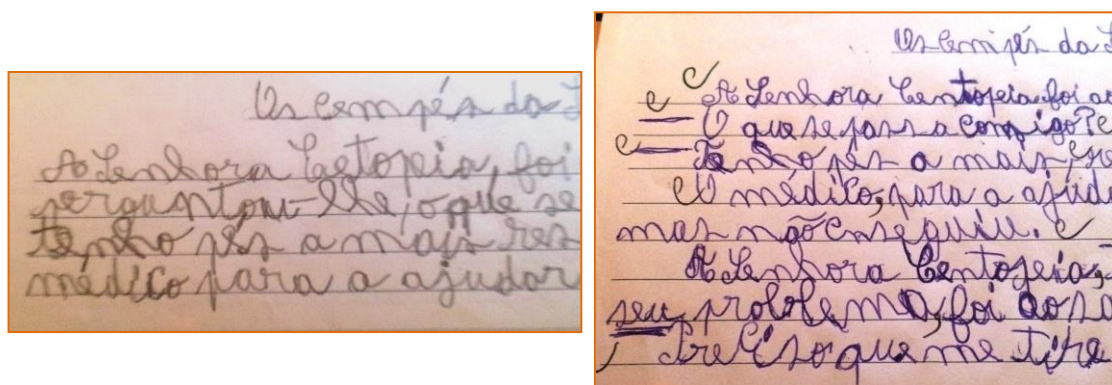 Os cem pés da
A Senhora Cetopeia, foi
perguntou-lhe, o que se
tenho pés a mais res
médico para a ajudar
Os cem pés da
A Senhora Centopeia foi a
— O que se passa comigo?
— Tenho pés a mais,
O médico, para a ajud
mas não conseguiu.
A Senhora Centopeia,
seu problema, foi ao s
Preciso que me tire